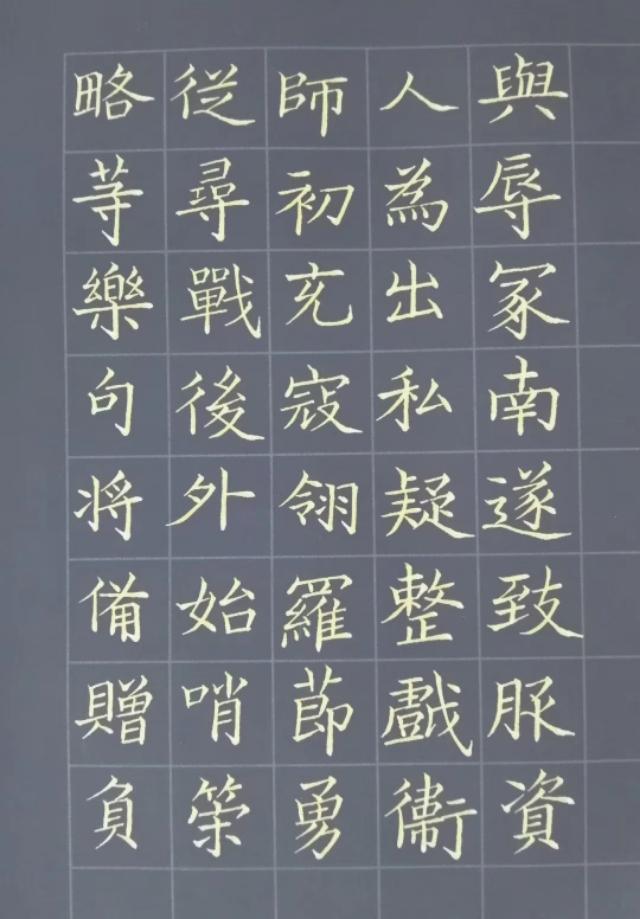 與辱冢南遂致服資
人為出私疑整戲衛
師初充寇翎羅莭勇
從尋戰後外始哨策
略等樂句将備贈負